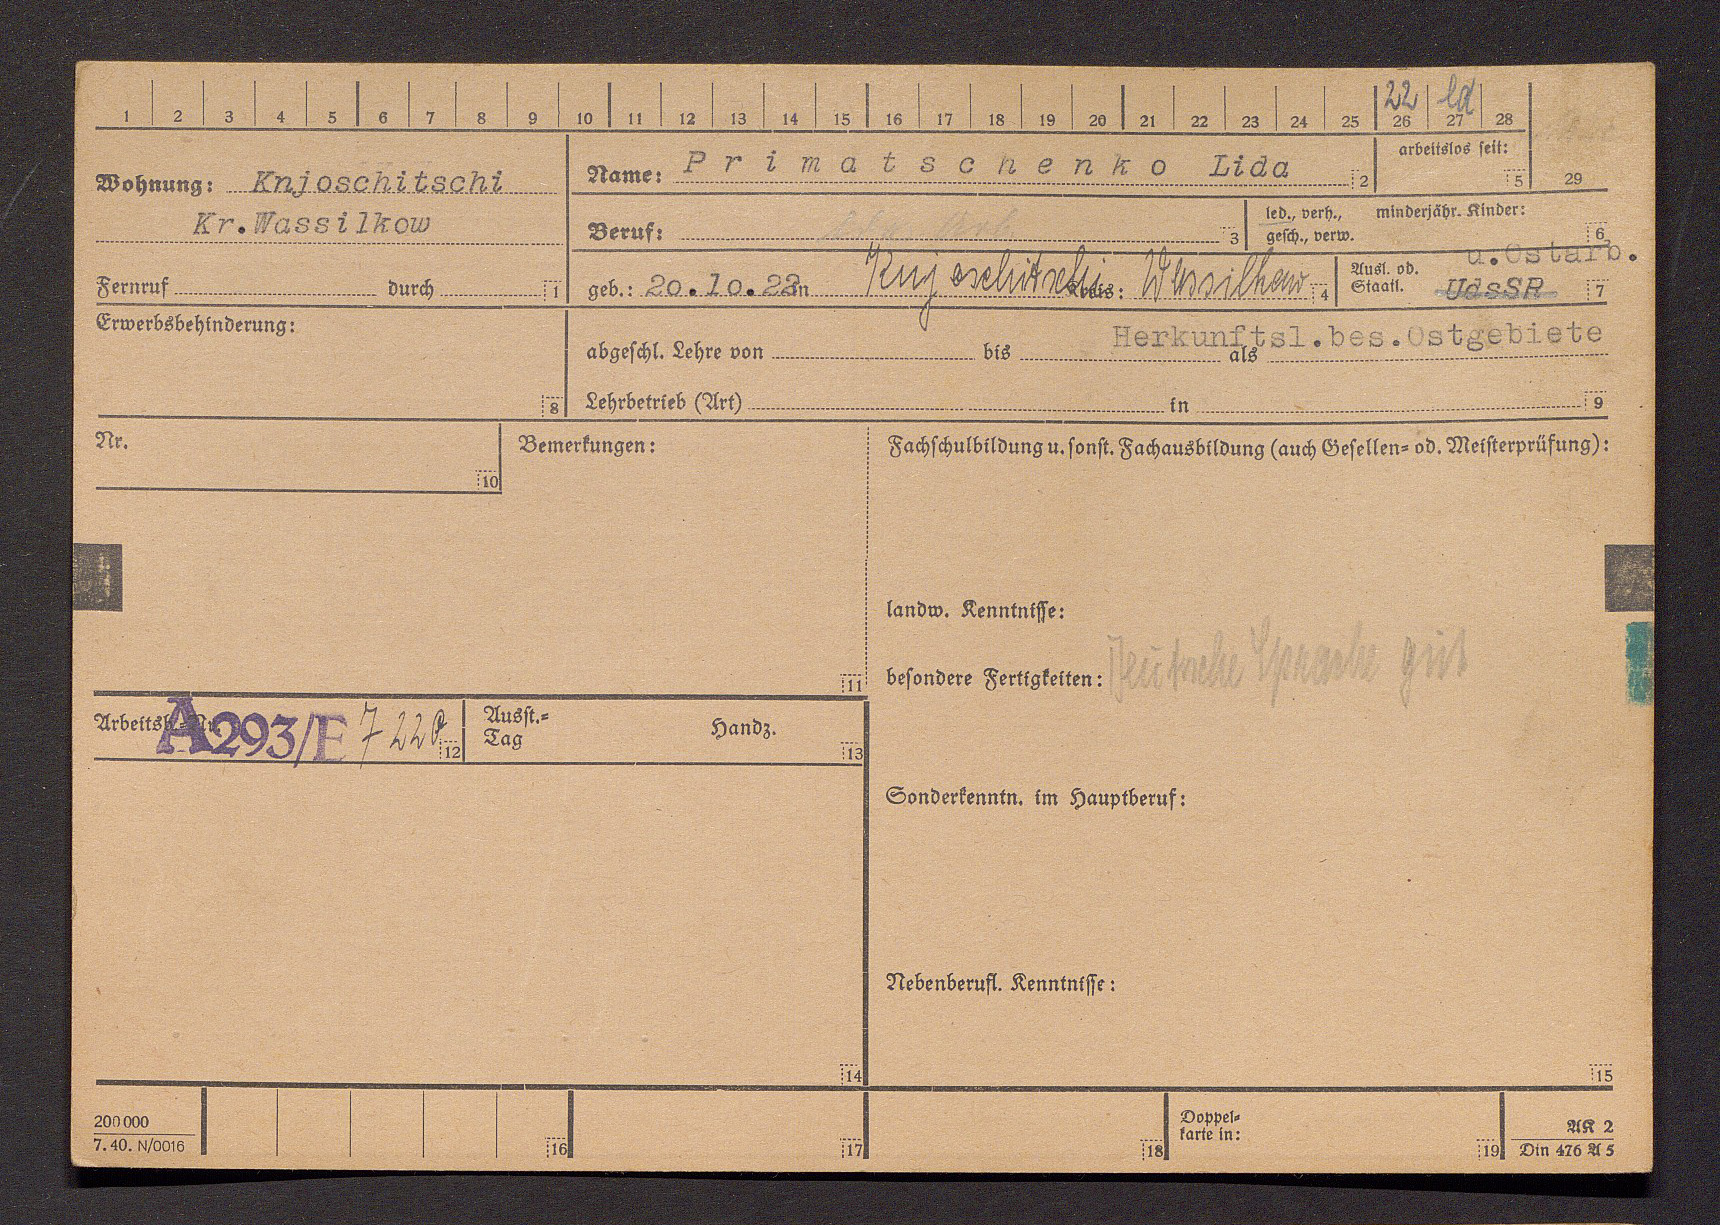 1 2 3 4 5 6 7 8 9 10 11 12 13 14 15 16 17 18 19 20 21 22 23 24 25 26 27 28
22 ld
arbeitslos seit:
5 29
Name: Primatschenko Lida 2
Wohnung: Knjoschitschi
Kr. Wassilkow
Fernruf durch 1
Beruf: 3
led., verh., minderjähr. Kinder:
gesch., verw. 6
geb.: 20.10.22 in Knjoschitschi Kreis: Wassilkow 4
u.Ostarb.
Ausl. od.
Staatl. UdSSR 7
Erwerbsbehinderung:
8
Herkunftsl.bes.Ostgebiete
abgeschl. Lehre von bis als
Lehrbetrieb (Art) in 9
Nr.
10
Bemerkungen:
11
Fachschulbildung u. sonst. Fachausbildung (auch Gesellen= od. Meisterprüfung):
landw. Kenntnisse:
besondere Fertigkeiten: Deutsche Sprache gut
Arbeitsb.=Nr. A293/E 7220 12
Ausst.=
Tag
Handz.
13
Sonderkenntn. im Hauptberuf:
Nebenberufl. Kenntnisse:
14
15
200000
7.40. N/0016
16
17
18
Doppel=
karte in:
19
AK 2
Din 476 A 5